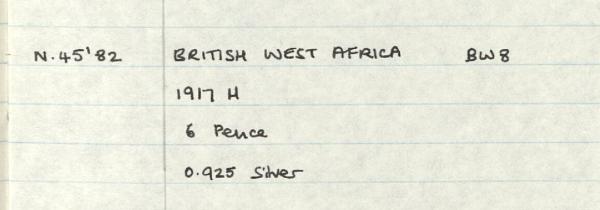 N.45'82 BRITISH WEST AFRICA BW8
1917 H
6 Pence
0.925 Silver